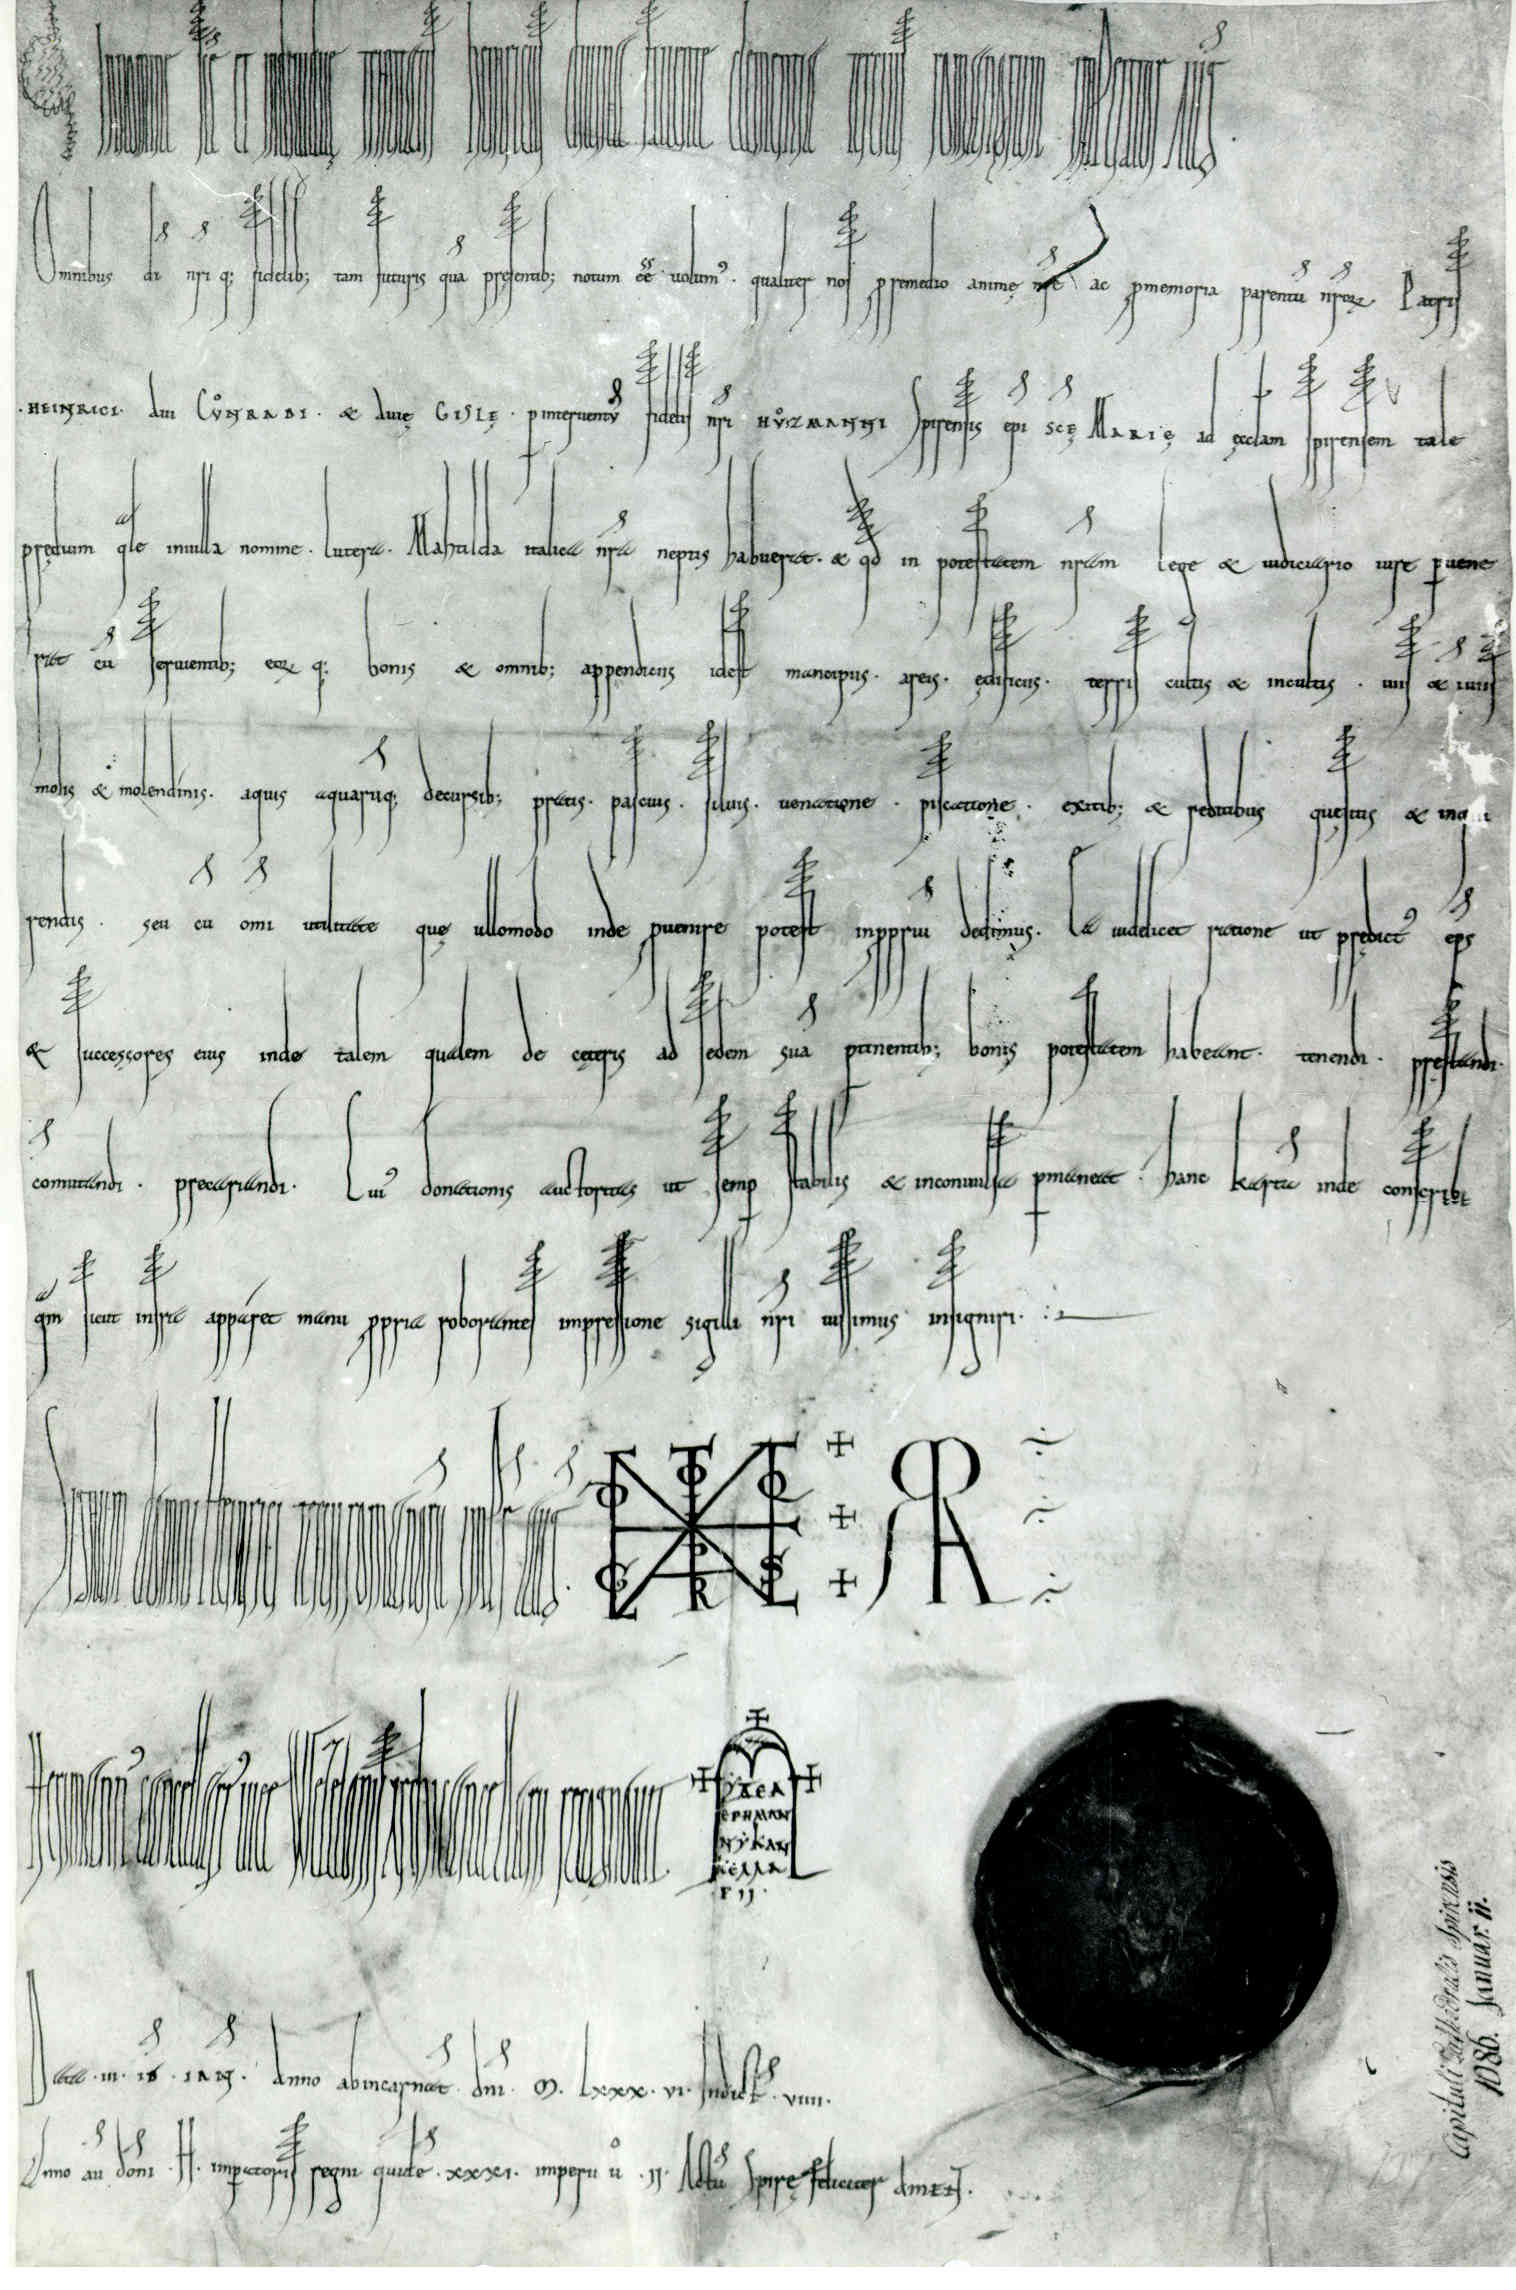 In nomine sce et individue trinitatis heinricus divina favente clementia tercius romanorum imperator aug̅s
Omnibus di̅ nr̅i q; fidelib; tam futuris qua̅ presentib; notum ee̅ volum9. qualiter nos p remedio anime nr̅e ac p memoria parentu̅ nr̅oꝝ Patris
HEINRICI. avi CVͦNRADI. & avię GISLĘ. p interventu̅ fidelis nr̅i HVͦZMANNI Spirensis ep̅i scę MARIĘ ad ęcclam Spirensem tale
prędium qͣle in villa nomine. Lutera. Mahtilda italica nr̅a neptis habuerat. & qd in potestatem nr̅am lege & iudiciario iure pvene
rat cu̅ servientib; eoꝝ q; bonis & omnib; appendiciis idest mancipiis. areis. ędificiis. terris cultis & incultis. viis & inviis
molis & molendinis. aquis aquaru̅q; decursib; pratis. pascuis. silvis. venatione. piscatione. exitib; & reditibus quęsitis & inqui
rendis. seu cu̅ om̅i utilitate quę ullomodo inde pvenire potest in ppriu̅ dedimus. Ea videlicet ratione ut prędict9 ep̅s
& successores eius inde talem qualem de cęteris ad sedem sua̅ ptinentib; bonis potestatem habeant. tenendi. pręstandi.
comutandi. precariandi. Cui9 donationis auctoritas ut semp stabilis & inconvulsa pmaneat. hanc karta̅ inde conscribi
qͣm sicut infra apparet manu ppria roborantes impressione sigilli nr̅i iussimus insigniri.
Signum domni Heinrici tercii romanoru̅ imp̅r aug̅.
Herimann9 cancellari9 vice Wezelonis archicancellarii recognovi.
Data. III. ID. IAN̅. Anno ab incarnat̅. dni̅. M. Lxxx. vi. Indict̅. viiii.
Anno au̅ dom̅i. H. imperatoris regni quide̅. xxxi. imperii vͦ. II. Actu̅ Spirę feliciter AMEN.
Capituli Cathedralis Spirensis
1086. Januar. ii.